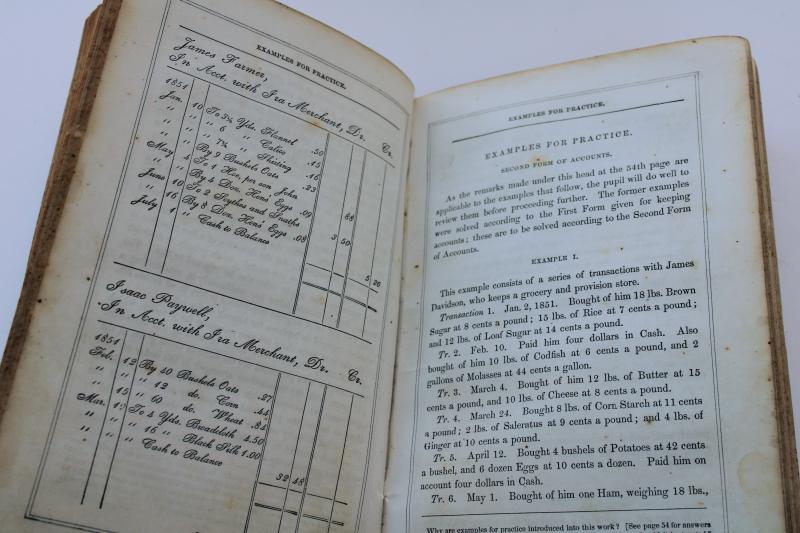 EXAMPLES FOR PRACTICE.
James Farmer,
In Acct. with Ira Merchant, Dr. Cr.
1851
Jan. 10 To 3¾ Yds. Flannel .50
" " " 6 " Calico .15
" " " 7¾ " Shirting .16
" " By 9 Bushels Oats .23
May 4 To 1 Hoe, per son John 88
" " By 4 Doz. Hen's Eggs .09
June 10 To 2 Scythes and Snaths 3 50
" 16 By 8 Doz. Hen's Eggs .08
July 1 " Cash to Balance 5 26
Isaac Paywell,
In Acct. with Ira Merchant, Dr. Cr.
1851
Feb. 12 By 40 Bushels Oats .27
" " " 12 do. Corn .44
" 15 " 60 do. Wheat .84
Mar. To 4 Yds. Broadcloth 4.50
" " " 16 " Black Silk 1.00
" " " Cash to Balance 32 48
EXAMPLES FOR PRACTICE.
EXAMPLES FOR PRACTICE.
SECOND FORM OF ACCOUNTS.
As the remarks made under this head at the 54th page are
applicable to the examples that follow, the pupil will do well to
review them before proceeding further. The former examples
were solved according to the First Form given for keeping
accounts; these are to be solved according to the Second Form
of Accounts.
EXAMPLE I.
This example consists of a series of transactions with James
Davidson, who keeps a grocery and provision store.
Transaction 1. Jan. 2, 1851. Bought of him 18 lbs. Brown
Sugar at 8 cents a pound; 15 lbs. of Rice at 7 cents a pound;
and 12 lbs. of Loaf Sugar at 14 cents a pound.
Tr. 2. Feb. 10. Paid him four dollars in Cash. Also
bought of him 10 lbs. of Codfish at 6 cents a pound, and 2
gallons of Molasses at 44 cents a gallon.
Tr. 3. March 4. Bought of him 12 lbs. of Butter at 15
cents a pound, and 10 lbs. of Cheese at 8 cents a pound.
Tr. 4. March 24. Bought 8 lbs. of Corn Starch at 11 cents
a pound; 2 lbs. of Saleratus at 9 cents a pound; and 4 lbs. of
Ginger at 10 cents a pound.
Tr. 5. April 12. Bought 4 bushels of Potatoes at 42 cents
a bushel, and 6 dozen Eggs at 10 cents a dozen. Paid him on
account four dollars in Cash.
Tr. 6. May 1. Bought of him one Ham, weighing 18 lbs.,
Why are examples for practice introduced into this work? [See page 54 for answers